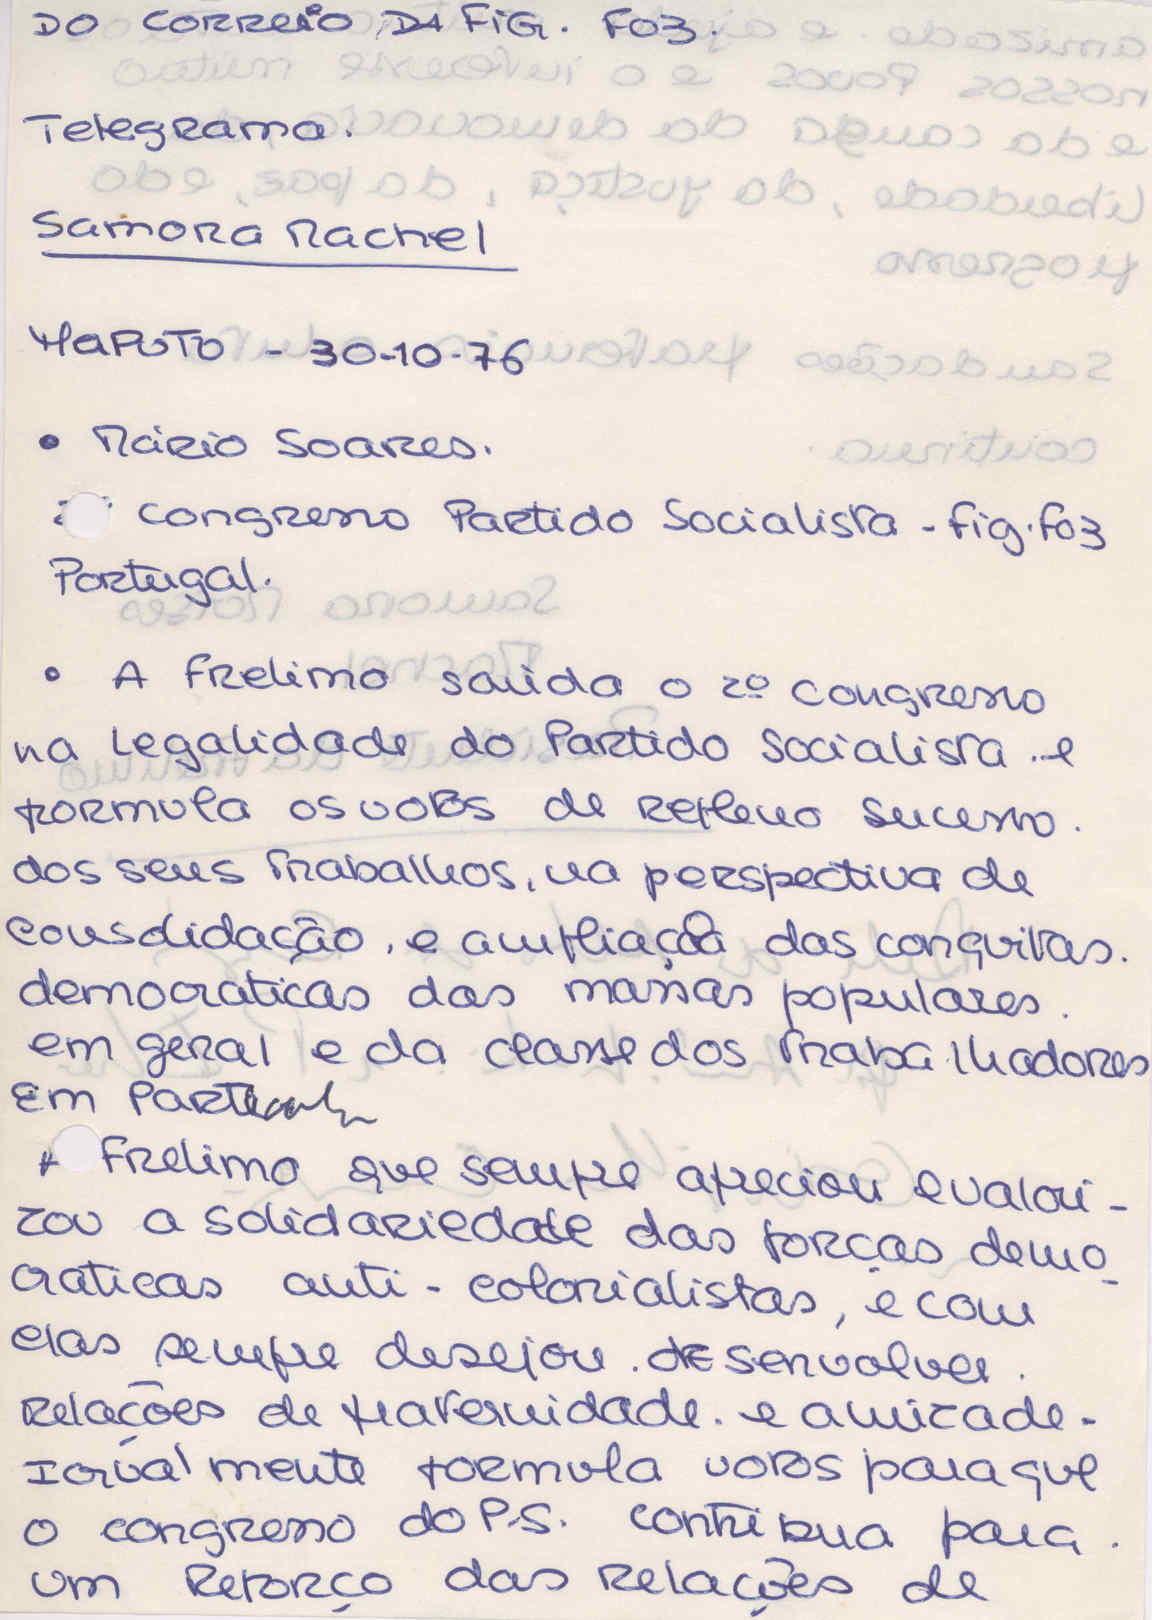 DO CORREIO DA FIG. FOZ.
Telegrama.
Samora Machel
MAPUTO - 30-10-76
• Mário Soares.
2º Congresso Partido Socialista - Fig. Foz
Portugal.
• A Frelimo saúda o 2º congresso
na Legalidade do Partido Socialista. e
formula os votos de Repleno sucesso.
dos seus Trabalhos, na perspectiva de
consolidação, e ampliação das conquistas.
democraticas das massas populares.
em geral e da classe dos Trabalhadores
em Particular
A Frelimo que sempre apreciou e valori-
zou a Solidariedade das forças demo-
craticas anti-colonialistas, e com
elas sempre desejou. desenvolver.
Relações de fraternidade. e amizade-
Igualmente formula votos para que
o congresso do P.S. contribua para.
um Reforço das Relações de